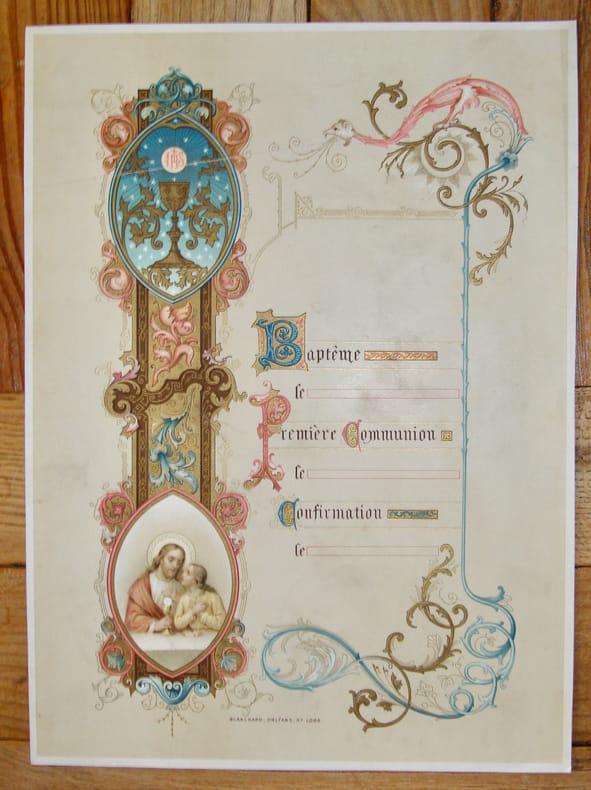 IHS
Baptême
le
Première Communion
le
Confirmation
le
BLANCHARD, ORLÉANS,